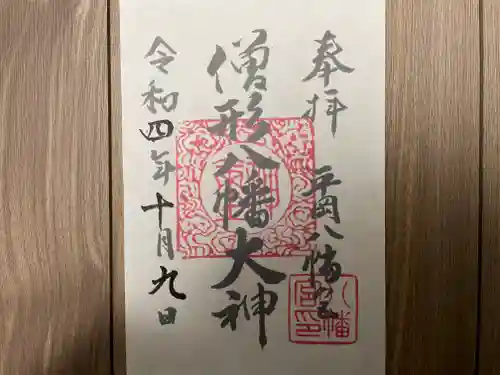 奉拝 平岡八幡宮
僧形八幡大神
令和四年十月九日
八幡宮印